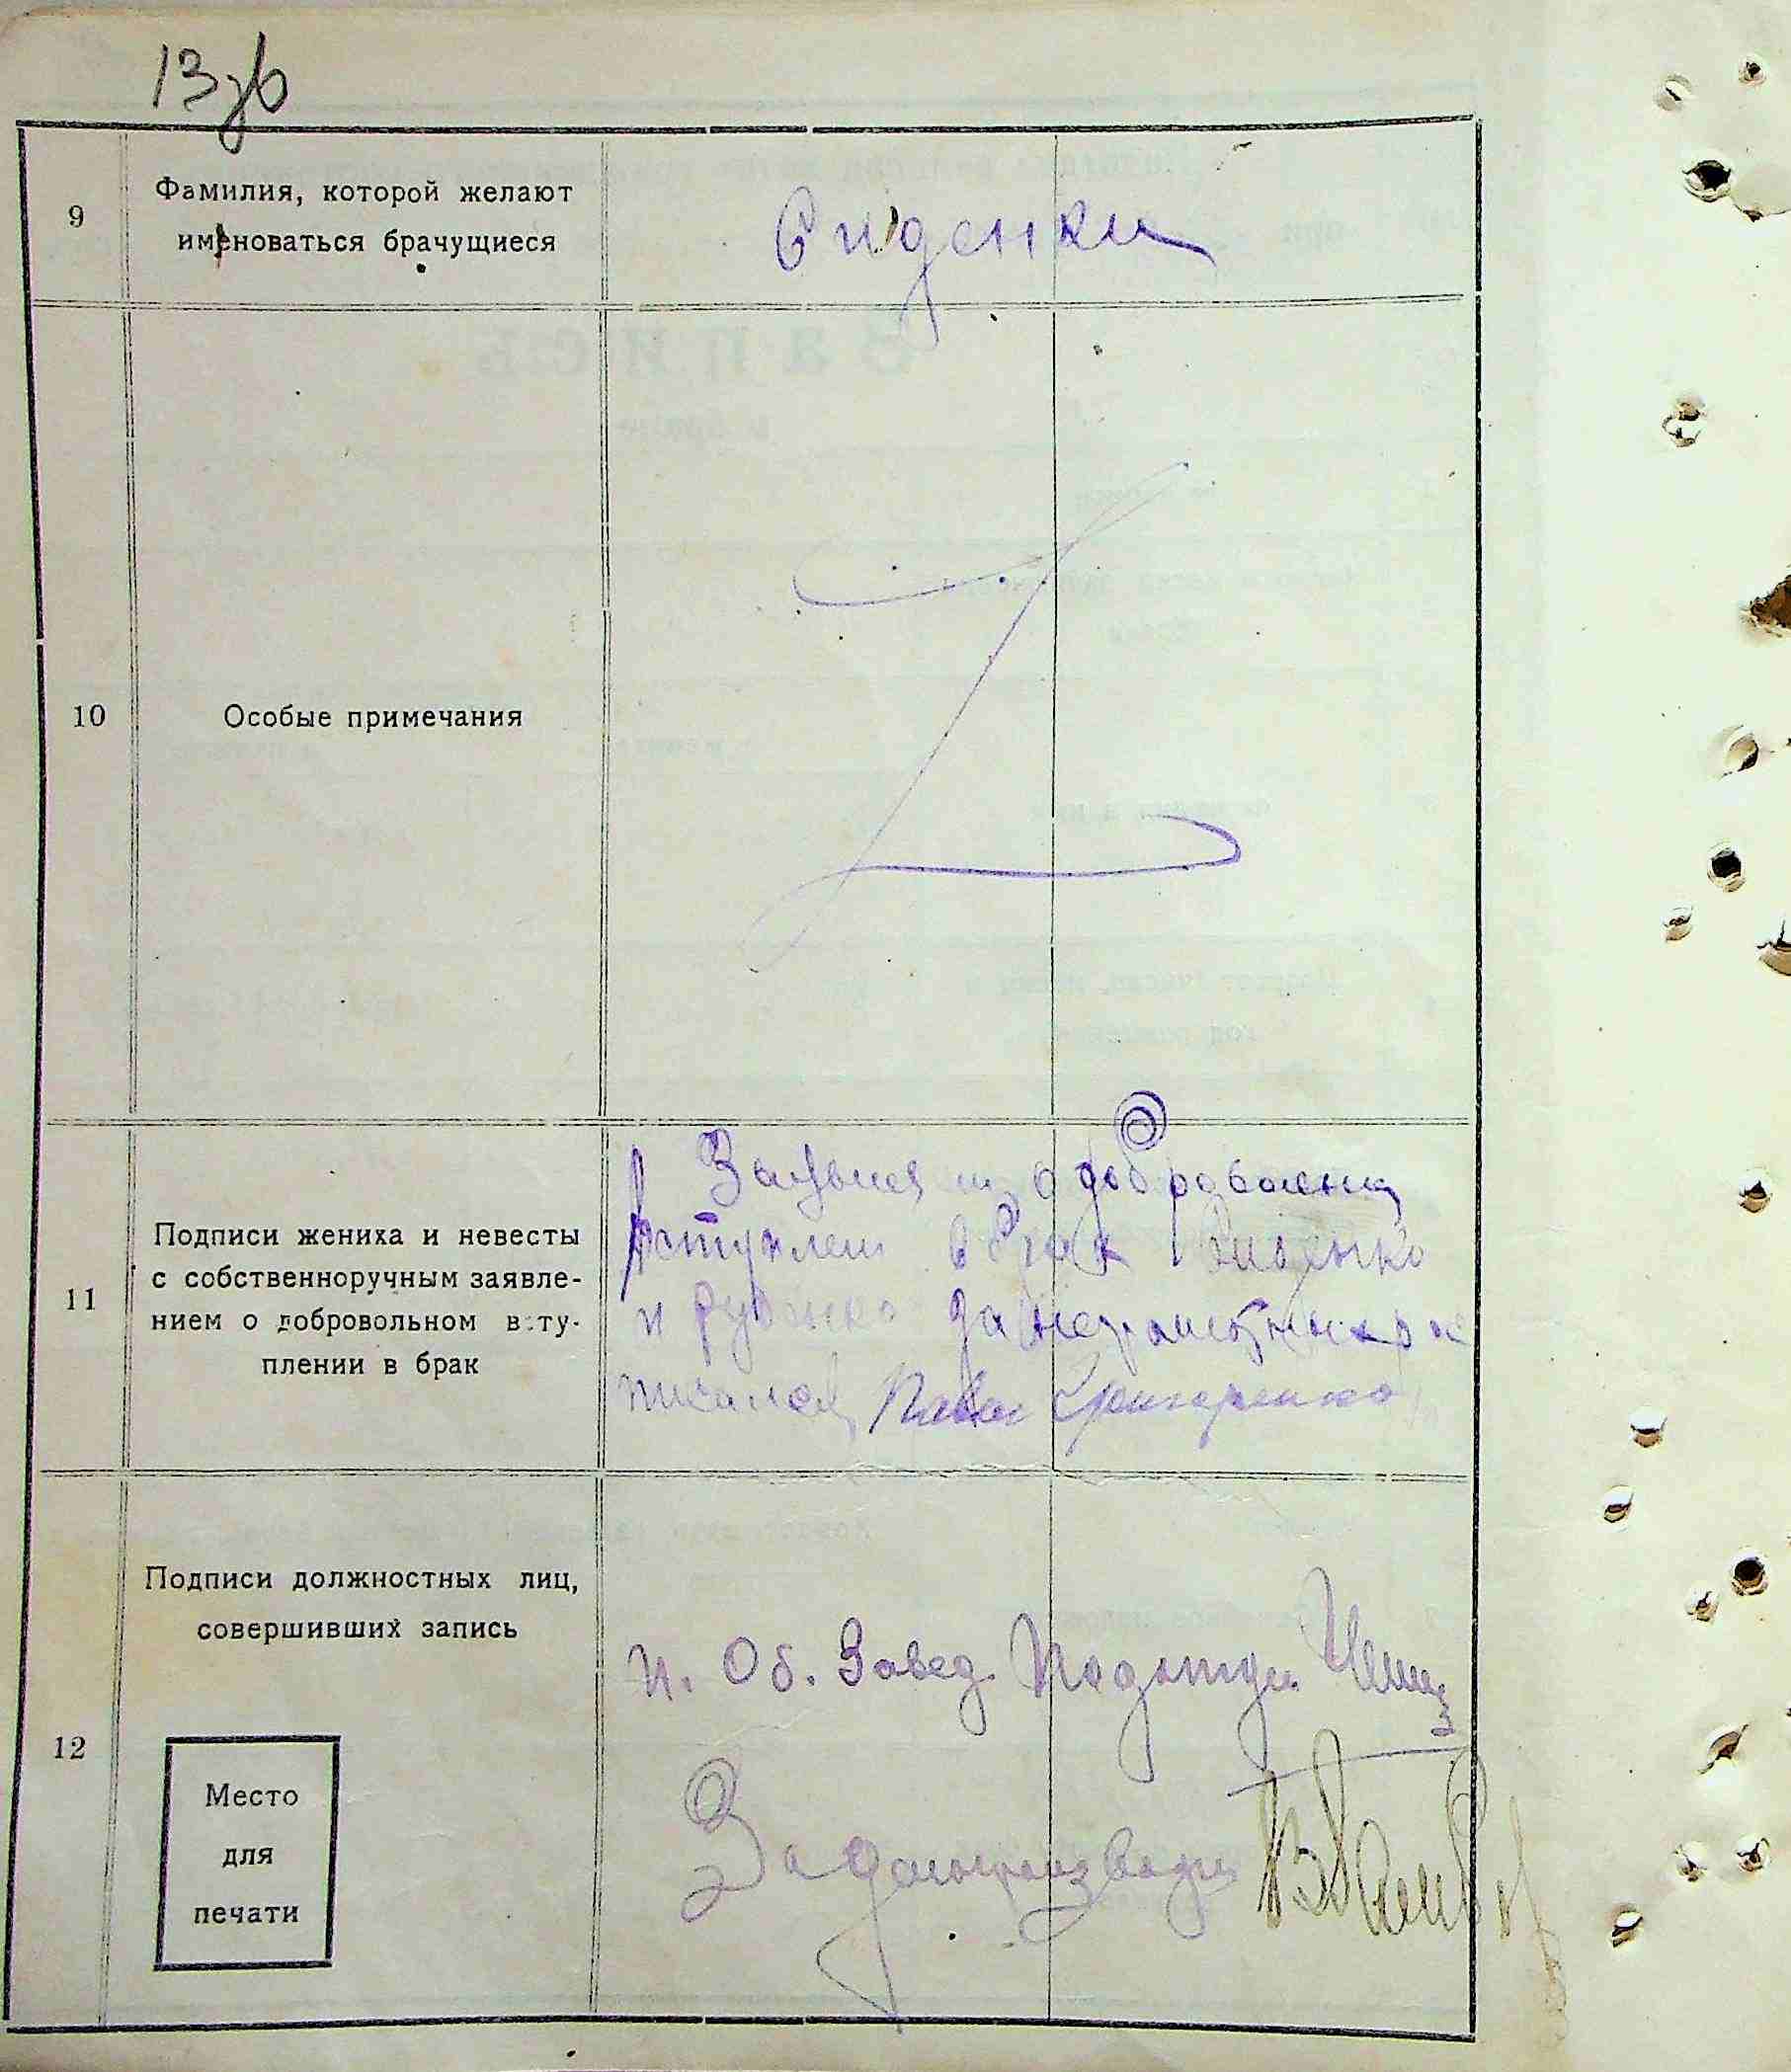 13зв
9
Фамилия, которой желают
именоваться брачущиеся
Сиденки
10
Особые примечания
11
Подписи жениха и невесты
с собственноручным заявле-
нием о добровольном всту-
плении в брак
о добровольн
вступлени в брак Сиденко
и за неграмотных рос
писался Павел Григоренко
12
Подписи должностных лиц,
совершивших запись
Место
для
печати
п. Об. Завед. Подотде
За делопроизводи